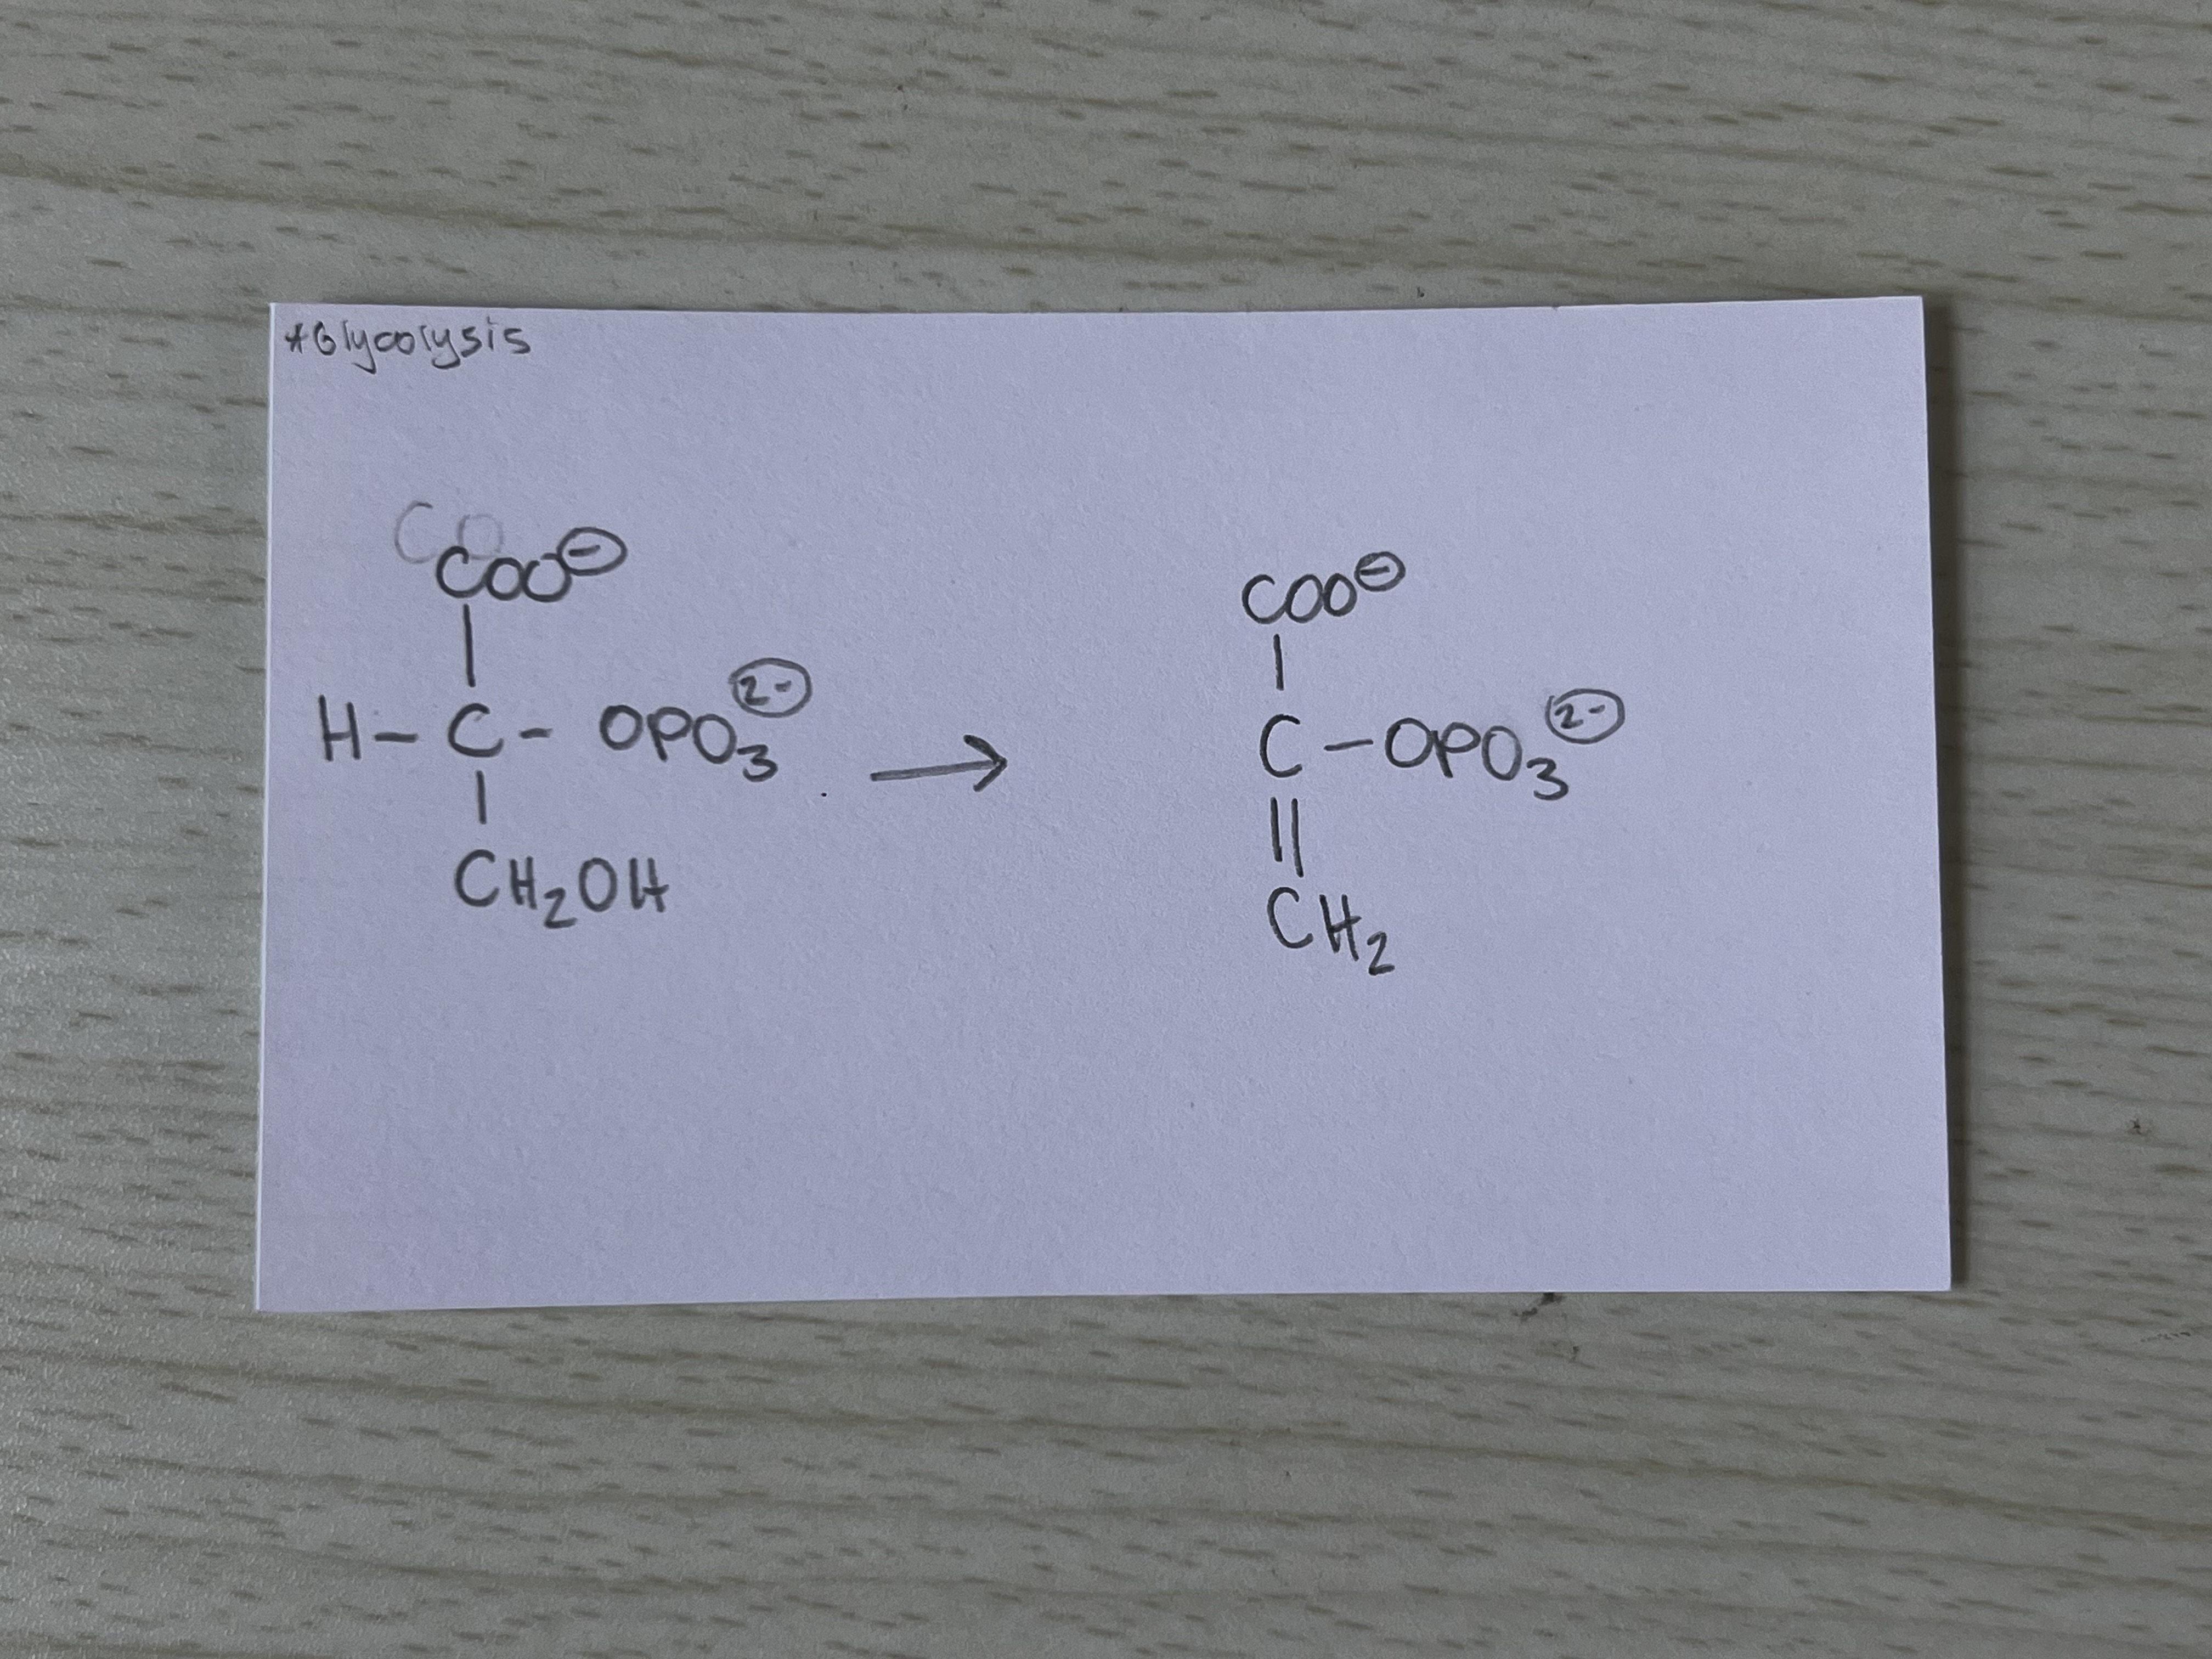 *Glycolysis
CO
COO⊖
H-C-OPO₃²⁻
CH₂OH
→
COO⊖
C-OPO₃²⁻
CH₂